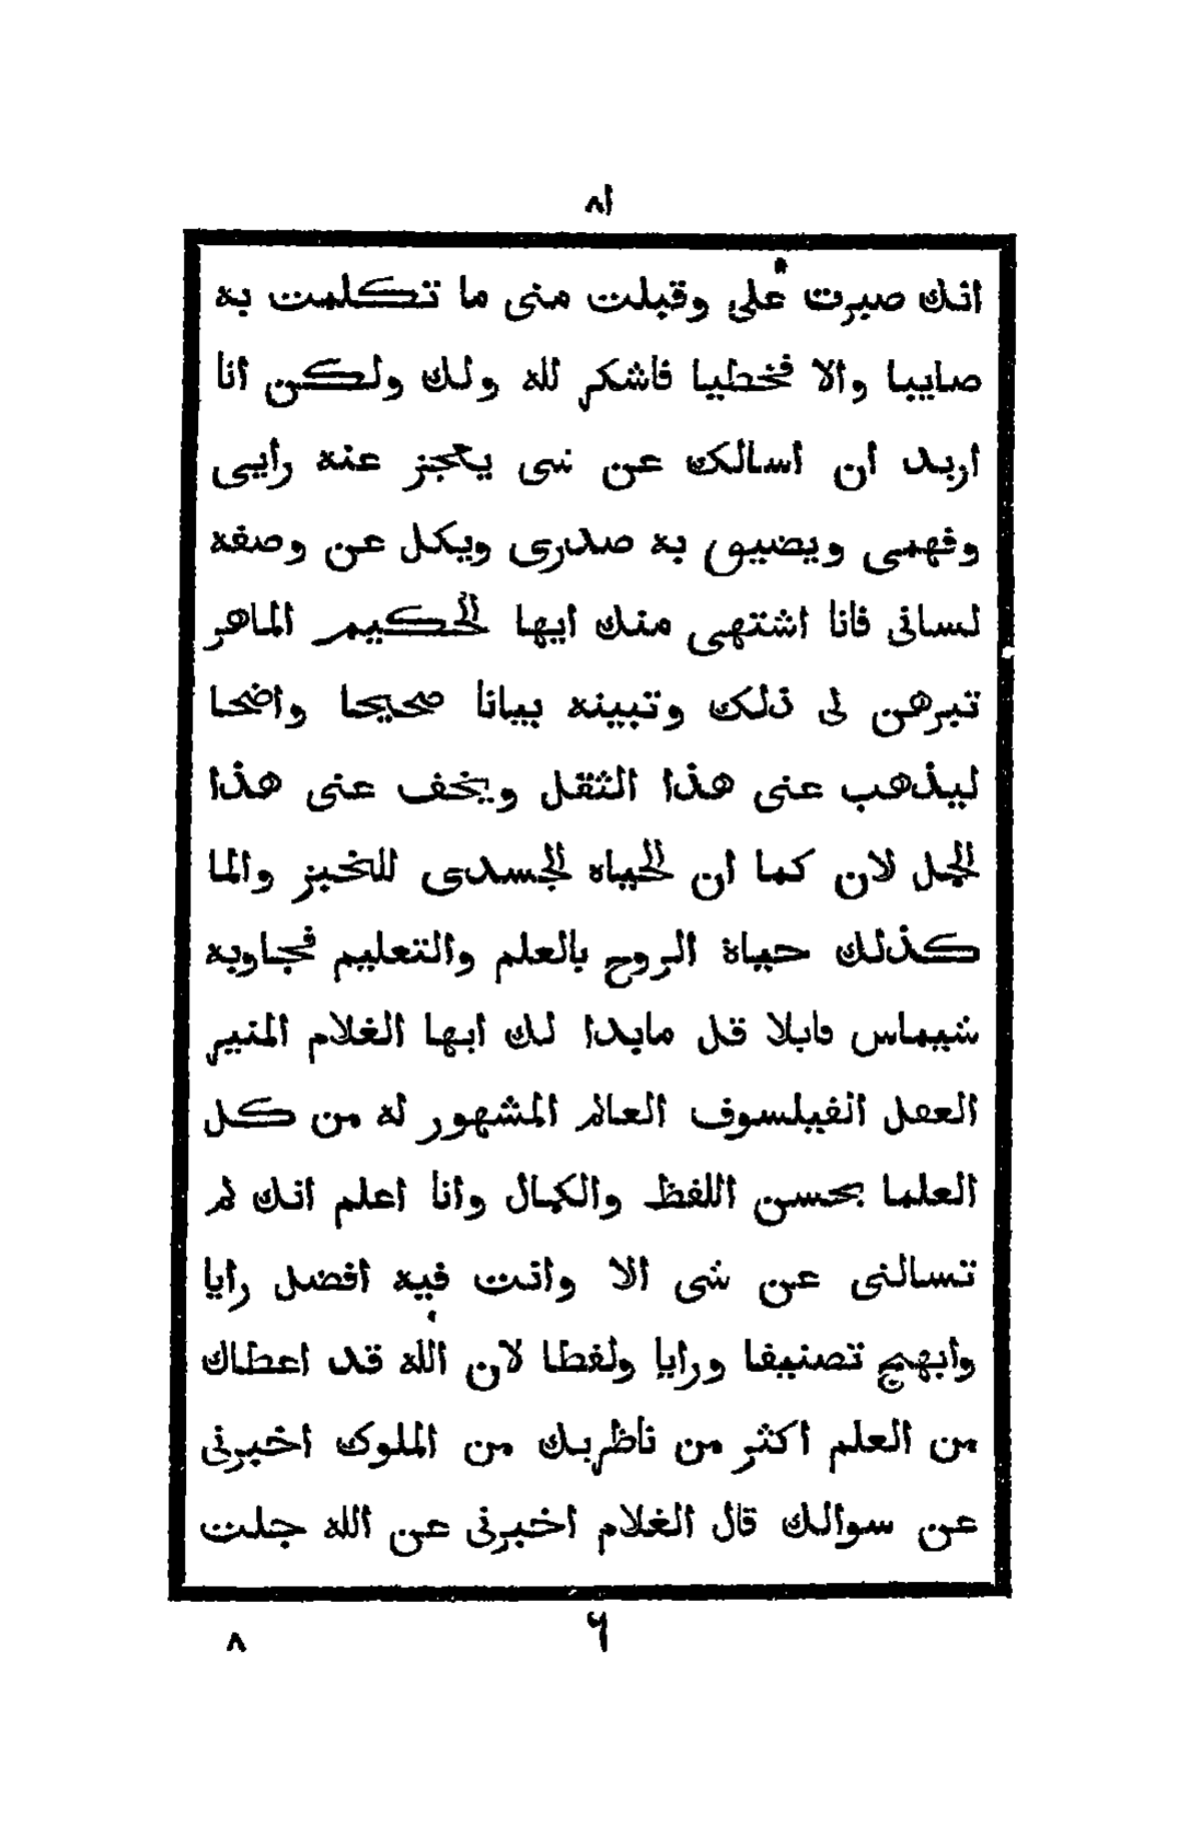 ٨١
انك صبرت على وقبلت منى ما تكلمت به
صايبا والا فخطيا فاشكر لله ولك ولكن انا
اريد ان اسالك عن شى يعجز عنه رايى
وفهمى ويضيق به صدرى ويكل عن وصفه
لسانى فانا اشتهى منك ايها الحكيم الماهر
تبرهن لى ذلك وتبينه بيانا صحيحا واضحا
ليذهب عنى هذا الثقل ويخف عنى هذا
الجمل لان كما ان الحياه الجسدى للخبز والما
كذلك حياة الروح بالعلم والتعليم فجاوبه
شيماس قايلا قل مابدا لك ايها الغلام المنير
العقل الفيلسوف العالم المشهور له من كل
العلما بحسن اللفظ والكمال وانا اعلم انك لم
تسالنى عن شى الا وانت فيه افضل رايا
وابهج تصنيفا ورايا ولفظا لان الله قد اعطاك
من العلم اكثر من ناظريك من الملوك اخبرنى
عن سوالك قال الغلام اخبرنى عن الله جلت
٦
٨